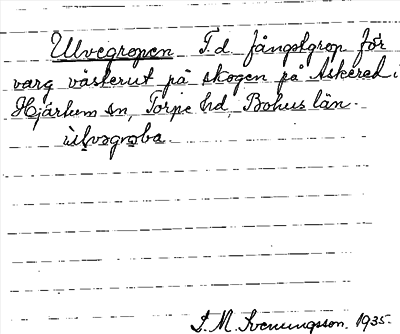 Ulvegropen F.d fångstgrop för
varg västerut på skogen på Askered i
Hjärtum sn, Torpe hd, Bohus län.
ùlvagroba
S. M. Svenungsson. 1935.